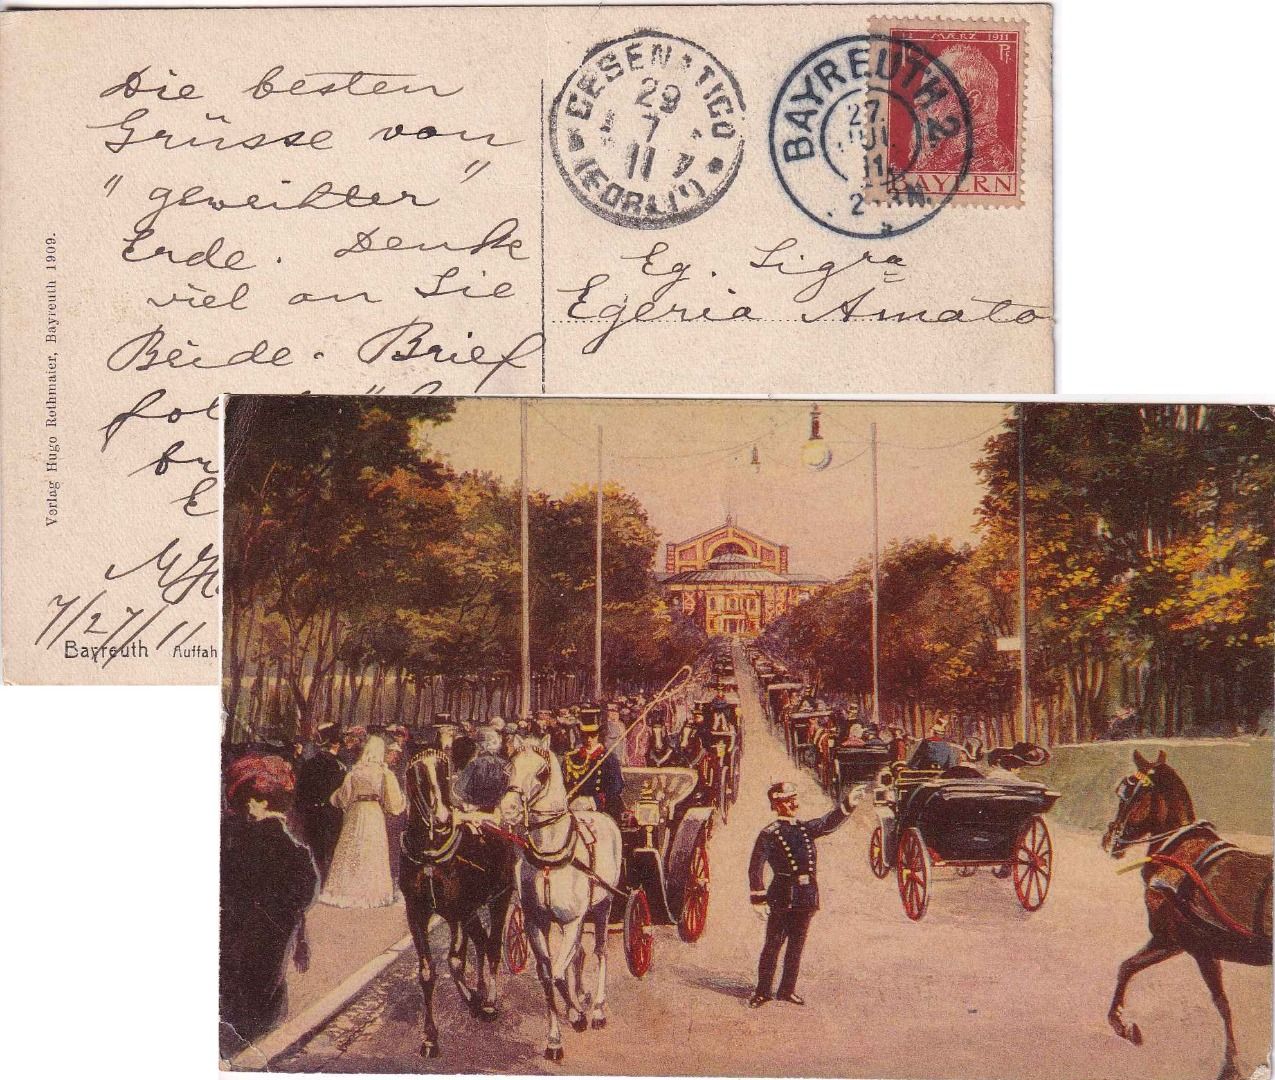 Die besten
Grüsse von
"geweihter"
Erde. Denke
viel an Sie
Beide. Brief
fol
br
E
7/27/11
Verlag Hugo Rothmaier, Bayreuth 1909.
Bayreuth Auffah
CESENATICO
29
7
11
(FORLI')
BAYREUTH 2
27.
JUL
11
MÆRZ 1911
Pf.
BAYERN
Eg. Sigra
Egeria Amato